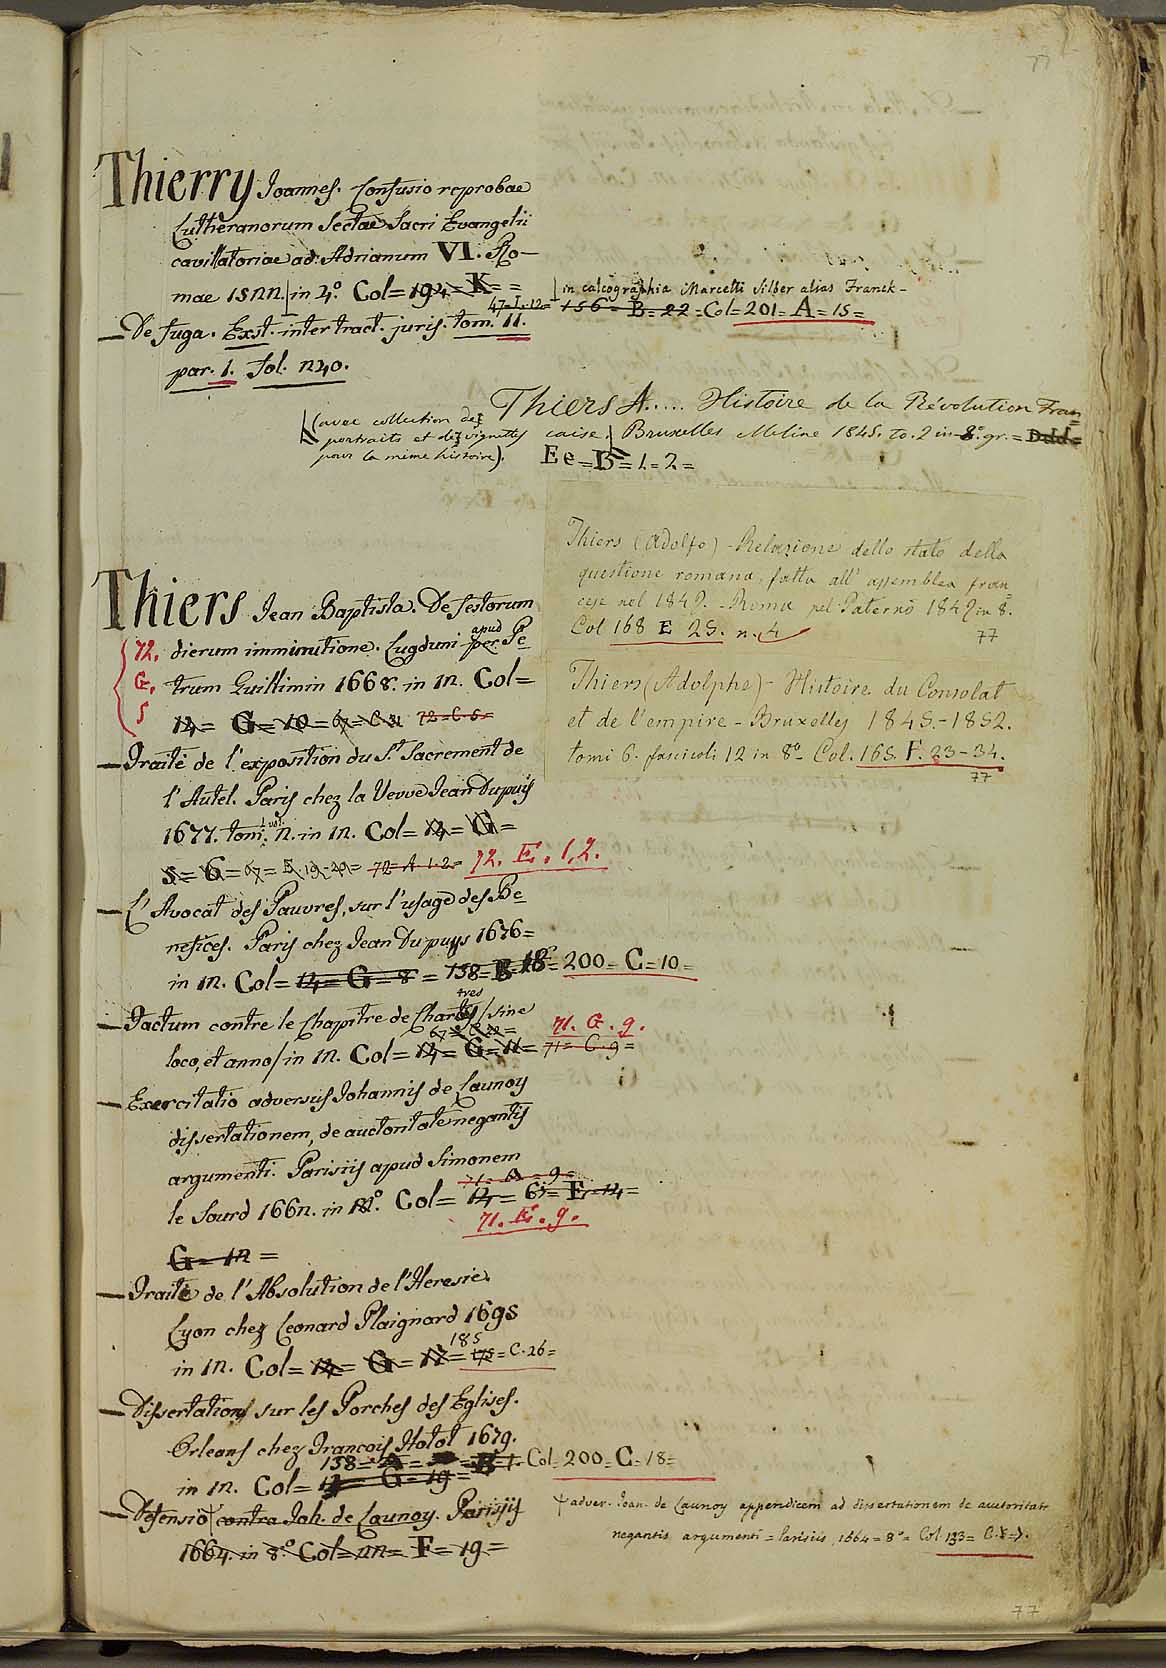 77
Thierry Joannes. Confusio reprobae
Lutheranorum Sectae Sacri Evangelii
cavillatoriae ad Adrianum VI. Ro-
mae 1522. in 4.º Col= 194= K= =
in calcographia Marcelli Silber alias Franck -
47-I-12= 156= B= 22 = Col= 201= A= 15=
— De fuga. Exst. inter tract. juris. tom. 11.
par. 1. fol. 240.
Thiers A..... Histoire de la Révolution Fran=
caise. Bruxelles Meline 1845. to. 2 in 8.º gr. = Ddd=
Ee= B= 1. 2.=
(avec collection des
portraits et des vignettes
pour la même histoire).
Thiers (Adolfo) - Relazione dello stato della
questione romana, fatta all' assemblea fran=
cese nel 1849. - Roma pel Paterno 1849 in 8.
Col 168 E 25. n. 4
77
Thiers (Adolphe) - Histoire du Consolat
et de l'empire - Bruxelles 1845.-1852.
tomi 6. fascicoli 12 in 8º Col. 165. F. 23-34.
77
Thiers Jean Baptista. De festorum
dierum imminutione. Lugduni per apud Pe=
trum Guillimin 1668. in 12. Col=
12= G= 10= 67= C. 31 72= C. 5=
72.
G.
5
— Traité de l'exposition du S.t Sacrement de
l'Autel. Paris chez la Veuve Jean Dupuis
1677. tom. 2. vol. in 12. Col= 12= G=
5= 6= 67= E 19-20= 72= A 1. 2= 72. E. 1,2.
— L'Avocat des Pauvres, sur l'usage des Be=
nefices. Paris chez Jean Du puys 1676=
in 12. Col= 12= G= 8= 138= B 18= 200= C= 10=
— Factum contre le Chapitre de Chartres / sine
loco, et anno / in 12. Col= 12= G= 11= 71= C. 9=
71. G. 9.
— Exercitatio adversus Johannis de Launoy
dissertationem, de auctoritate negantis
argumenti. Parisiis apud Simonem
le Sourd 1662. in 12º. Col= 12= 65= E= 14=
71. E. 9.
G= 12=
— Traité de l'Absolution de l'Heresie.
Lyon chez Leonard Plaignard 1695
in 12. Col= 12= G= 13= 175= 185 C. 26=
— Dissertations sur les Porches des Eglises.
Orleans chez Francois Hotot 1679.
in 12. Col= 12= G= 19= Col= 200= C= 18=
— Defensio contra Joh. de Launoy. Parisijs
1664. in 8.º Col= 22= F= 19=
adver. Joan. de Launoy appendicem ad dissertationem de auctoritate
negantis argumenti = Parisiis, 1664= 8º= Col 133= C.
77